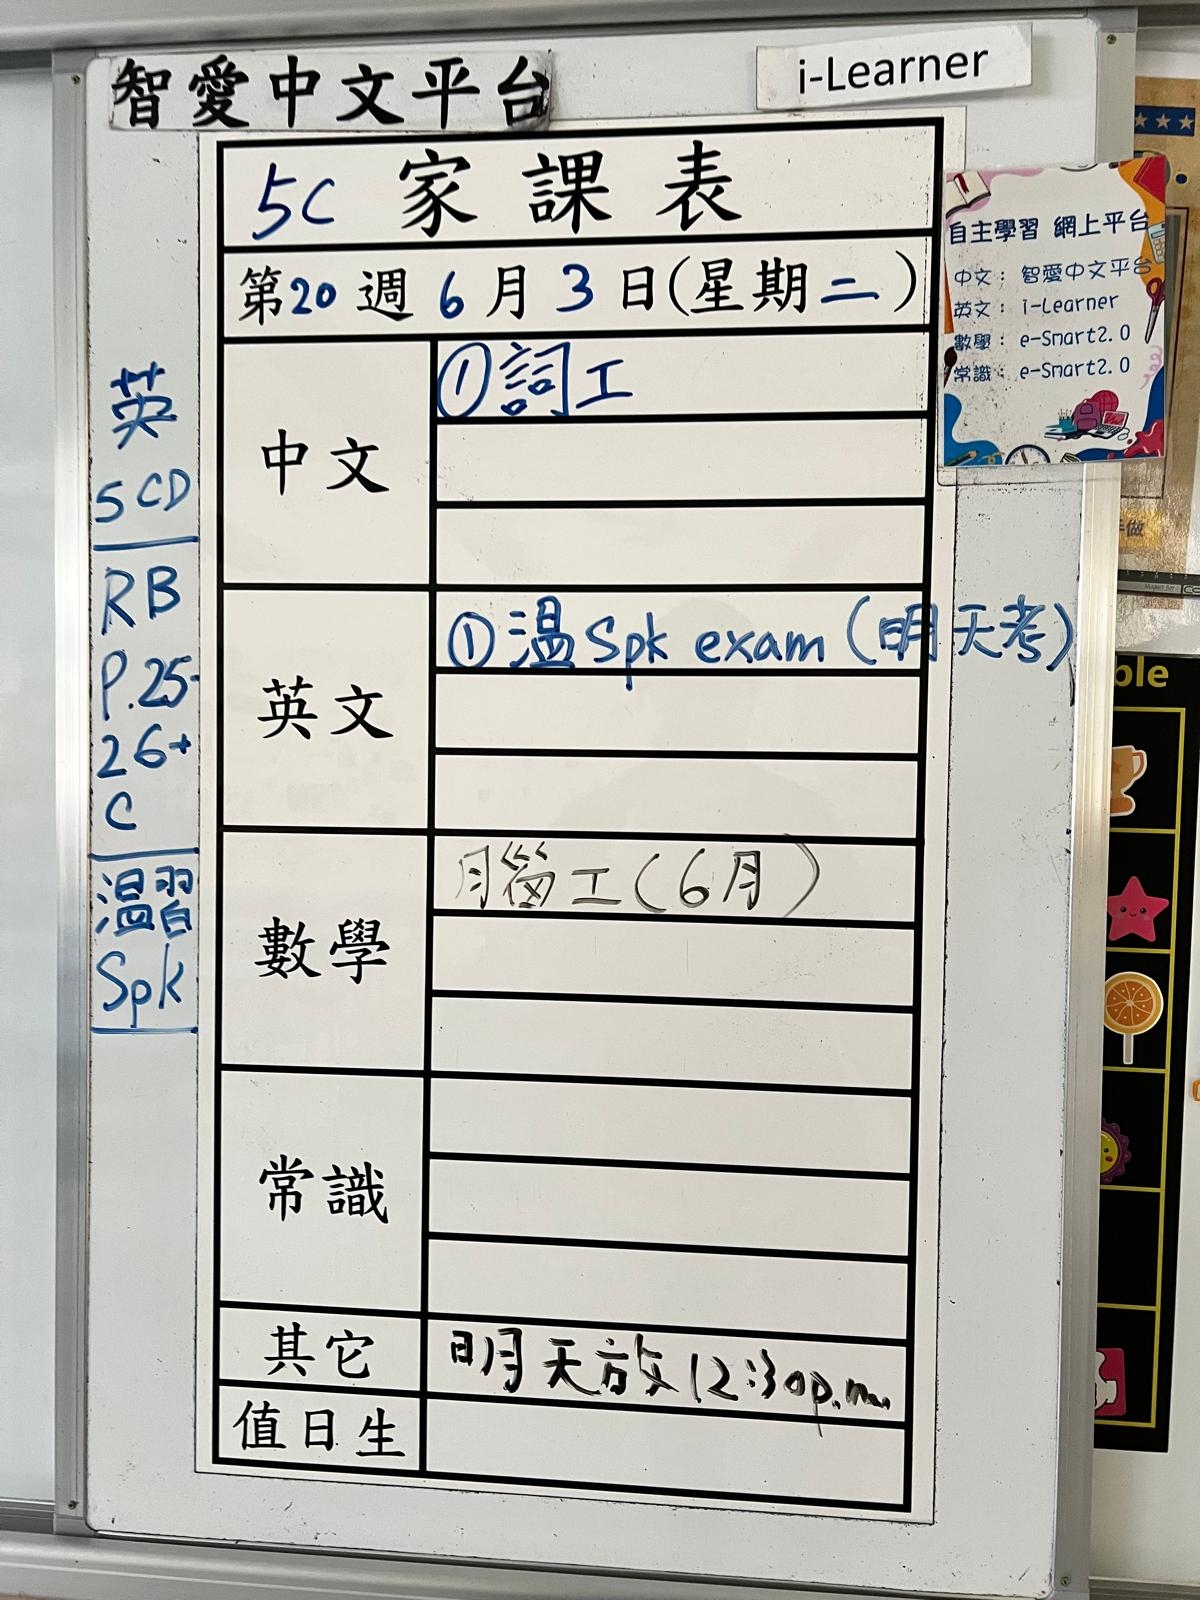 智愛中文平台
i-Learner
5C 家課表
第20週6月3日(星期二)
中文
①詞工
英文
①温Spk exam(明天考)
數學
腦工(6月)
常識
其它
明天放12:30p.m.
值日生
英
5CD
RB
P.25-
26+
C
温習
Spk
自主學習 網上平台
中文： 智愛中文平台
英文： i-Learner
數學： e-Smart2.0
常識： e-Smart2.0
ble